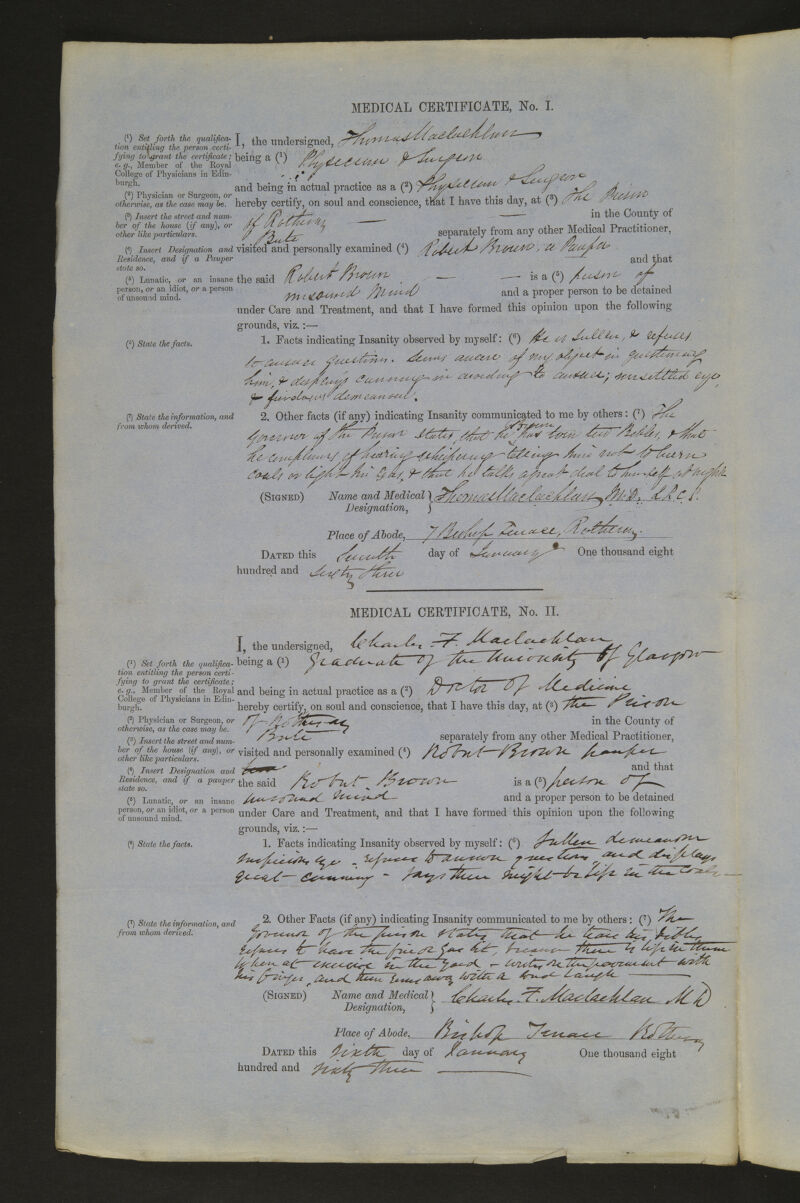 MEDICAL CERTIFICATE, No. I.
(1) Set forth the qualifica-
tion entitling the person certi-
fying to grant the certificate;
e. g., Member of the Royal
College of Physicians in Edin-
burgh.
(2) Physician or Surgeon, or
otherwise, as the case may be.
(3) Insert the street and num-
ber of the house (if any), or
other like particulars.
(4) Insert Designation and
Residence, and if a Pauper
state so.
(5) Lunatic, or an insane
person, or an idiot, or a person
of unsound mind.
(6) State the facts.
(7) State the information, and
from whom derived.
I, the undersigned, Thomas Maclachlan
being a (1) Physician & Surgeon
and being in actual practice as a (2) Physician & Surgeon
hereby certify, on soul and conscience, that I have this day, at (3) The Prison
of Rothesay in the County of
Bute separately from any other Medical Practitioner,
visited and personally examined (4) Robert Brown, a Pauper
and that
the said Robert Brown is a (5) person of
unsound mind and a proper person to be detained
under Care and Treatment, and that I have formed this opinion upon the following
grounds, viz. :—
1. Facts indicating Insanity observed by myself: (6) He is Sullen, & refuses
to answer questions. Seems aware of my object in questioning
him, & displays cunning in avoiding to answer; unsettled eye,
& demeanour.
2. Other facts (if any) indicating Insanity communicated to me by others: (7) The
Governor of the Prison states, that he has torn two Bibles, & that
he complains of hearing whispering telling him not to burn
coals or light his Gas, & that he talks a great deal to himself at night
(SIGNED) Name and Medical Designation, Thomas Maclachlan M.D.
Place of Abode, 7 Bishop Terrace, Rothesay.
DATED this day of January One thousand eight
hundred and Sixty three
MEDICAL CERTIFICATE, No. II.
(1) Set forth the qualifica-
tion entitling the person certi-
fying to grant the certificate;
e. g., Member of the Royal
College of Physicians in Edin-
burgh.
(2) Physician or Surgeon, or
otherwise, as the case may be.
(3) Insert the street and num-
ber of the house (if any), or
other like particulars.
(4) Insert Designation and
Residence, and if a pauper
state so.
(5) Lunatic, or an insane
person, or an idiot, or a person
of unsound mind.
(6) State the facts.
(7) State the information, and
from whom derived.
I, the undersigned, Charles F. Maclachlan
being a (1) Graduate of the University of Glasgow
and being in actual practice as a (2) Doctor of Medicine
hereby certify, on soul and conscience, that I have this day, at (3) the Prison
of Rothesay in the County of
Bute separately from any other Medical Practitioner,
visited and personally examined (4) Robert Brown pauper
and that
the said Robert Brown is a (5) person of
unsound mind and a proper person to be detained
under Care and Treatment, and that I have formed this opinion upon the following
grounds, viz. :—
1. Facts indicating Insanity observed by myself: (6) Sullen demeanour
suspicious eye - refuses to answer questions, and displays
great cunning - says there might be life in the coals
2. Other Facts (if any) indicating Insanity communicated to me by others: (7) The
Governor of the prison states that he tears his bibles
refuses to have the fire or gas lit because there is life in them
when at exercise in the yard - writes on the pavement with
his finger, and then runs away with a loud laugh
(SIGNED) Name and Medical Designation, Charles F. Maclachlan M D
Place of Abode, Bishop Terrace Rothesay
DATED this Sixth day of January One thousand eight
hundred and sixty three